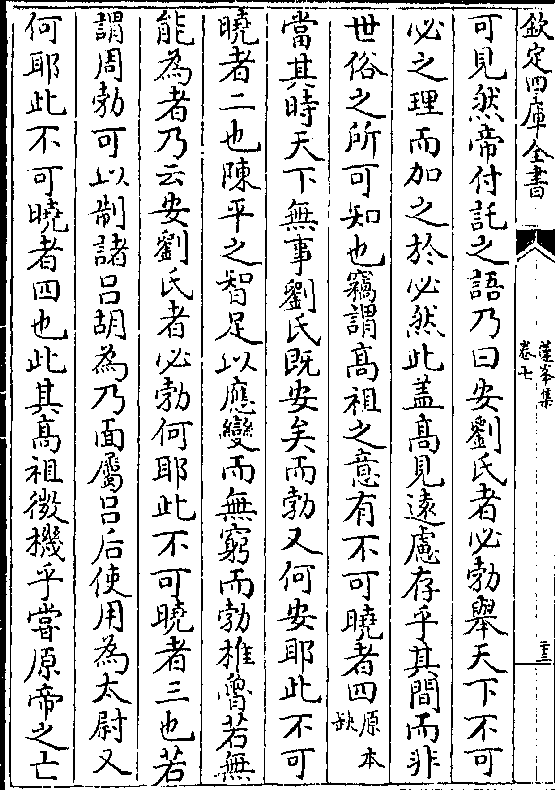 欽定四庫全書
蓮峯集
卷七
十三
可見然帝付託之語乃曰安劉氏者必勃舉天下不可
必之理而加之於必然此盖髙見逺慮存乎其間而非
世俗之所可知也竊謂髙祖之意有不可曉者四原本缺
當其時天下無事劉氏既安矣而勃又何安耶此不可
曉者二也陳平之智足以應變而無窮而勃椎魯若無
能為者乃云安劉氏者必勃何耶此不可曉者三也若
謂周勃可以制諸呂胡為乃面屬呂后使用為太尉又
何耶此不可曉者四也此其髙祖微機乎嘗原帝之亡